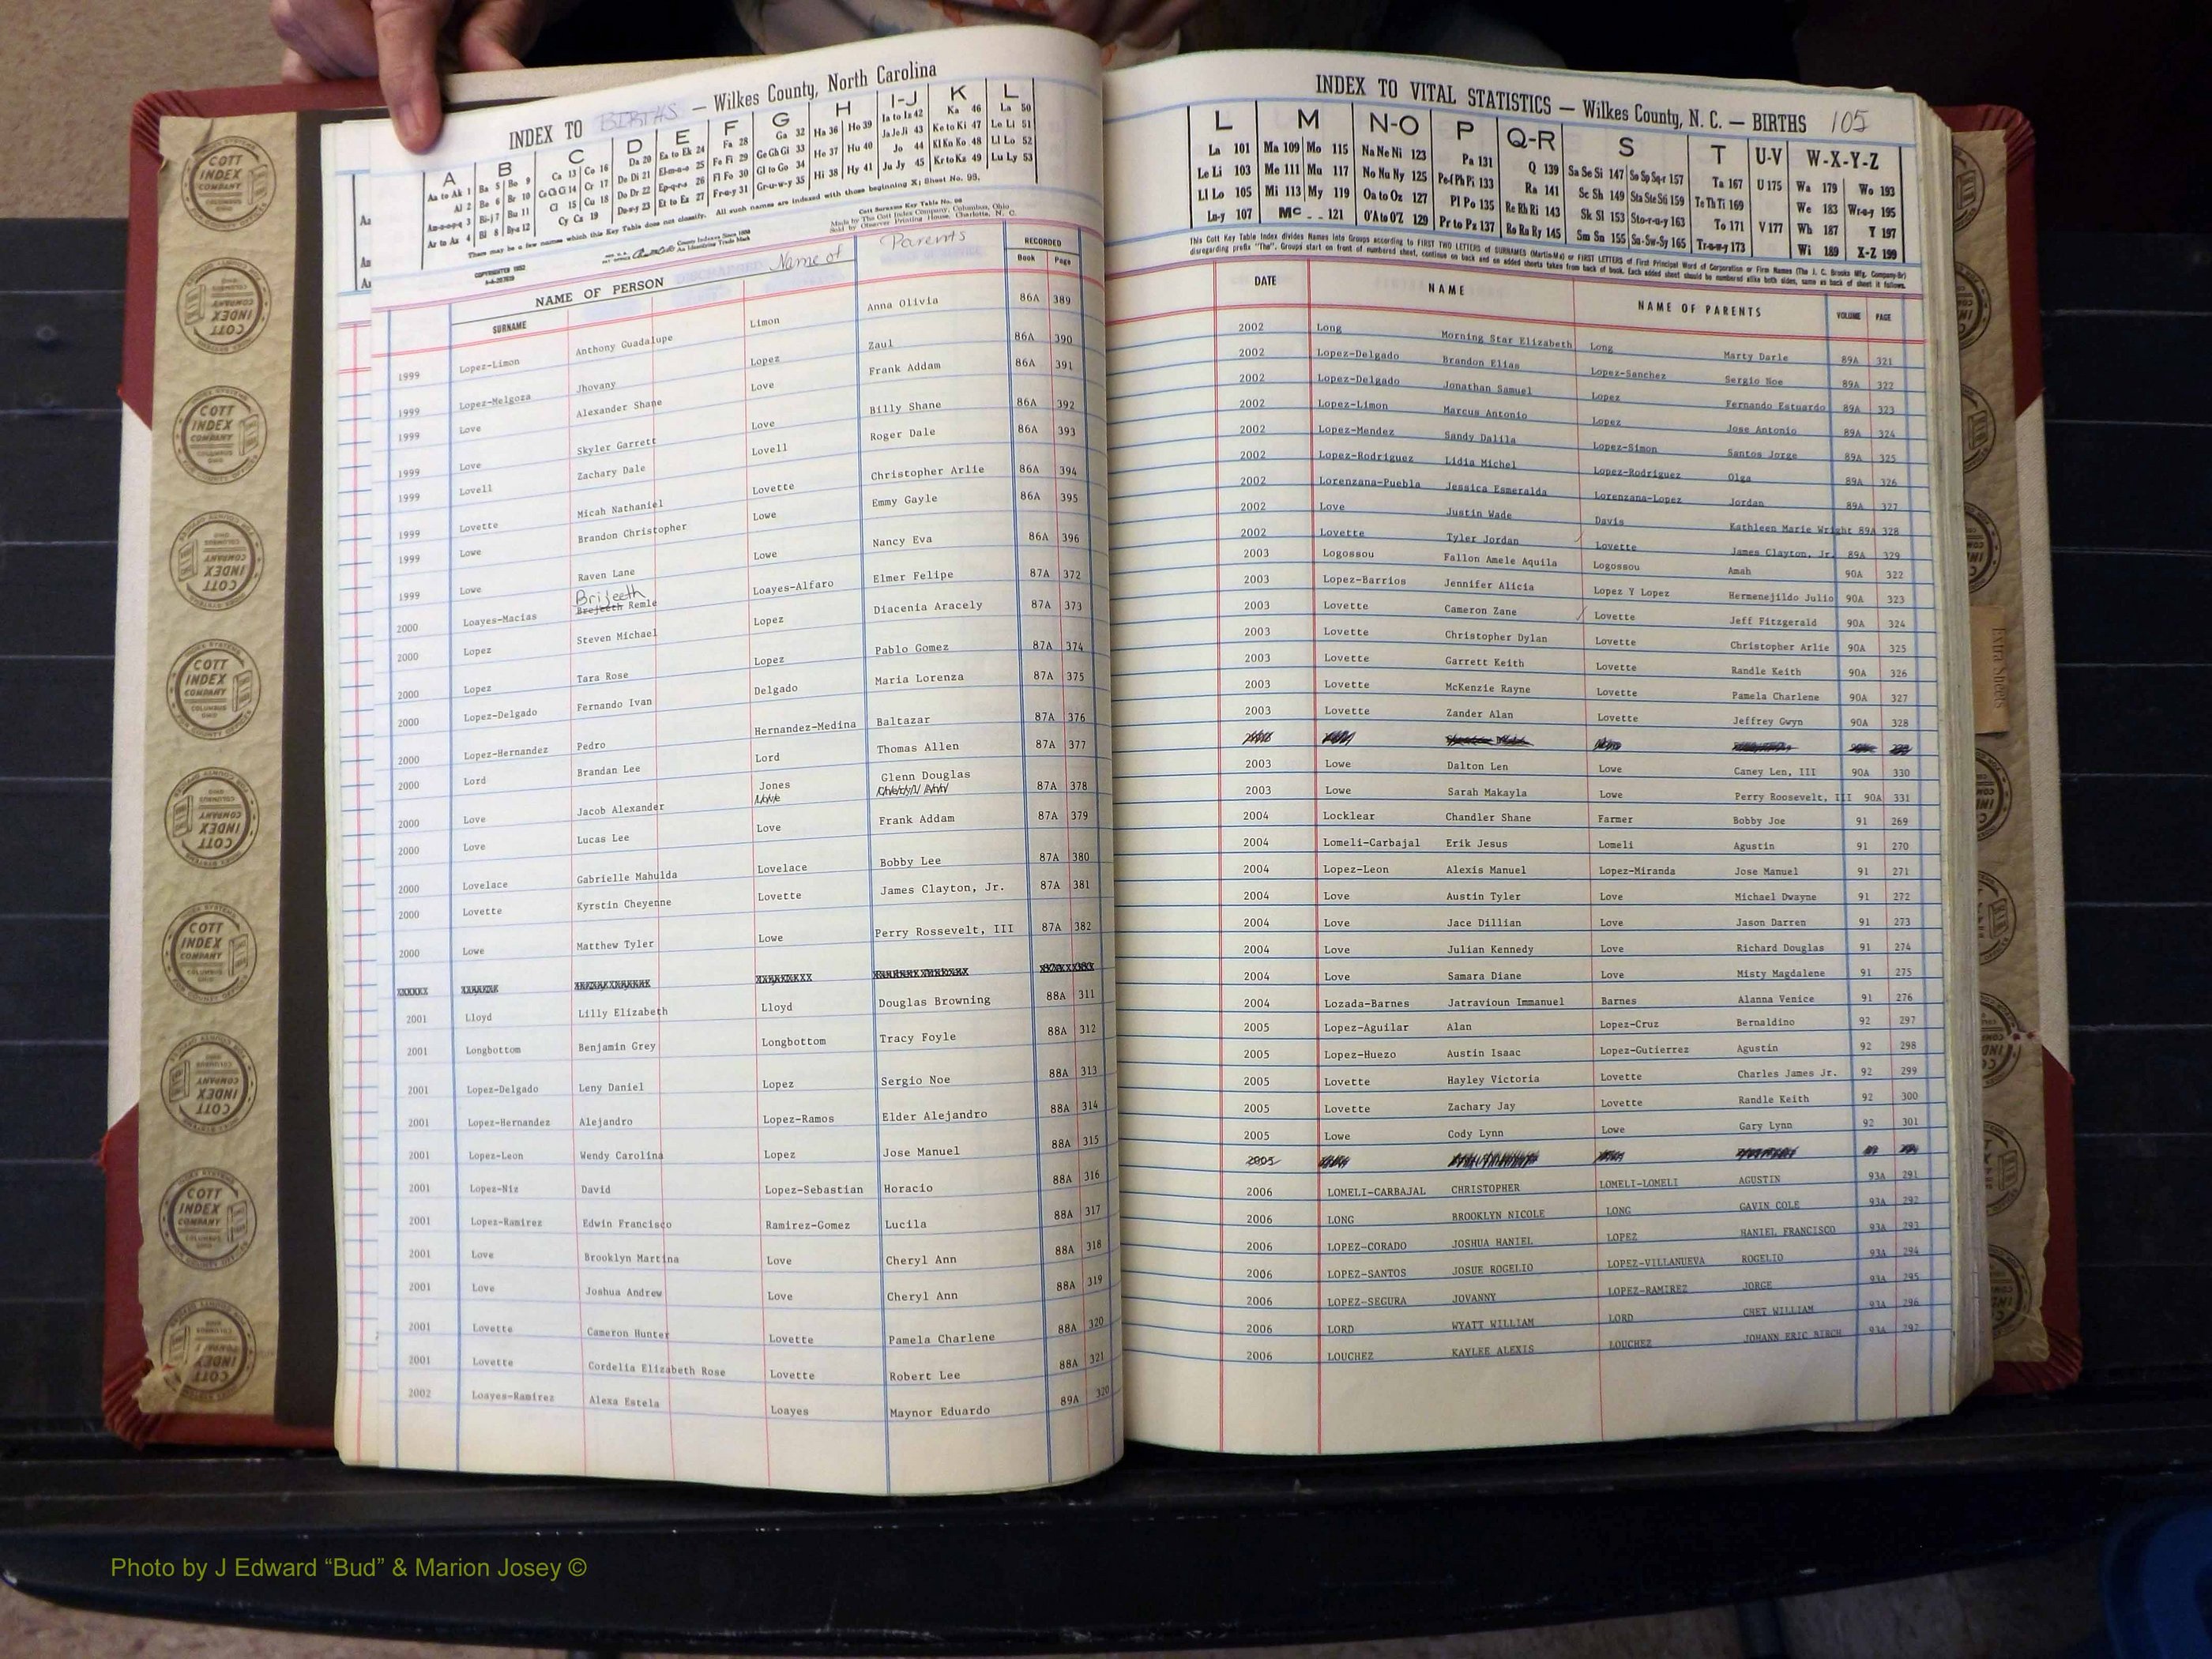 INDEX TO BIRTHS — Wilkes County, North Carolina
A B C D E F G H I-J K L
Aa to Ak 1 Ba 5 Bo 9 Ca 13 Co 16 Da 20 Ea to Ek 24 Fa 28 Ga 32 Ha 36 Ho 39 Ia to Iz 42 Ka 46 La 50
Al 2 Be 6 Br 10 Ce Ch Ci 14 Cr 17 De Di 21 El-m-n-o 25 Fe Fi 29 Ge Gh Gi 33 He 37 Hu 40 Ja Je Ji 43 Ke to Ki 47 Le Li 51
Am-n-o-p-q 3 Bi-j 7 Bu 11 Cl 15 Cu 18 Do Dr 22 Ep-q-r-s 26 Fl Fo 30 Gl to Go 34 Hi 38 Hy 41 Jo 44 Kl Kn Ko 48 Ll Lo 52
Ar to Az 4 Bl 8 By-a 12 Cy Cz 19 Du-s-y 23 Et to Ez 27 Fr-u-y 31 Gr-u-w-y 35 Ju Jy 45 Kr to Kz 49 Lu Ly 53
There may be a few names which this Key Table does not classify. All such names are indexed with those beginning X; Sheet No. 99.
Cott Surname Key Table No. 98
Made by The Cott Index Company, Columbus, Ohio
Sold by Observer Printing House, Charlotte, N. C.
NAME OF PERSON Name of Parents RECORDED
SURNAME Book Page
1999 Lopez-Limon Anthony Guadalupe Limon Anna Olivia 86A 389
1999 Lopez-Melgoza Jhovany Lopez Zaul 86A 390
1999 Love Alexander Shane Love Frank Addam 86A 391
1999 Love Skyler Garrett Love Billy Shane 86A 392
1999 Lovell Zachary Dale Lovell Roger Dale 86A 393
1999 Lovette Micah Nathaniel Lovette Christopher Arlie 86A 394
1999 Lowe Brandon Christopher Lowe Emmy Gayle 86A 395
1999 Lowe Raven Lane Lowe Nancy Eva 86A 396
Brijeeth
2000 Loayes-Macias Brejeeth Remle Loayes-Alfaro Elmer Felipe 87A 372
2000 Lopez Steven Michael Lopez Diacenia Aracely 87A 373
2000 Lopez Tara Rose Lopez Pablo Gomez 87A 374
2000 Lopez-Delgado Fernando Ivan Delgado Maria Lorenza 87A 375
2000 Lopez-Hernandez Pedro Hernandez-Medina Baltazar 87A 376
2000 Lord Brandan Lee Lord Thomas Allen 87A 377
2000 Love Jacob Alexander Jones Glenn Douglas 87A 378
2000 Love Lucas Lee Love Frank Addam 87A 379
2000 Lovelace Gabrielle Mahulda Lovelace Bobby Lee 87A 380
2000 Lovette Kyrstin Cheyenne Lovette James Clayton, Jr. 87A 381
2000 Lowe Matthew Tyler Lowe Perry Rossevelt, III 87A 382
2001 Lloyd Lilly Elizabeth Lloyd Douglas Browning 88A 311
2001 Longbottom Benjamin Grey Longbottom Tracy Foyle 88A 312
2001 Lopez-Delgado Leny Daniel Lopez Sergio Noe 88A 313
2001 Lopez-Hernandez Alejandro Lopez-Ramos Elder Alejandro 88A 314
2001 Lopez-Leon Wendy Carolina Lopez Jose Manuel 88A 315
2001 Lopez-Niz David Lopez-Sebastian Horacio 88A 316
2001 Lopez-Ramirez Edwin Francisco Ramirez-Gomez Lucila 88A 317
2001 Love Brooklyn Martina Love Cheryl Ann 88A 318
2001 Love Joshua Andrew Love Cheryl Ann 88A 319
2001 Lovette Cameron Hunter Lovette Pamela Charlene 88A 320
2001 Lovette Cordelia Elizabeth Rose Lovette Robert Lee 88A 321
2002 Loayes-Ramirez Alexa Estela Loayes Maynor Eduardo 89A 320
INDEX TO VITAL STATISTICS — Wilkes County, N. C. — BIRTHS 105
L M N-O P Q-R S T U-V W-X-Y-Z
La 101 Ma 109 Mo 115 Na Ne Ni 123 Pa 131 Q 139 Sa Se Si 147 So Sp Sq-r 157 Ta 167 U 175 Wa 179 Wo 193
Le Li 103 Me 111 Mu 117 No Nu Ny 125 Pe-f Ph Pi 133 Ra 141 Sc Sh 149 Sta Ste Sti 159 Te Th Ti 169 We 183 Wr-u-y 195
Ll Lo 105 Mi 113 My 119 Oa to Oz 127 Pl Po 135 Re Rh Ri 143 Sk Sl 153 Sto-r-u-y 163 To 171 V 177 Wh 187 Y 197
Lu-y 107 Mc 121 O'A to O'Z 129 Pr to Ps 137 Ro Ru Ry 145 Sm Sn 155 Su-Sw-Sy 165 Tr-u-w-y 173 Wi 189 X-Z 199
This Cott Key Table Index divides Names into Groups according to FIRST TWO LETTERS of SURNAMES (Martin-Ma) or FIRST LETTERS of First Principal Word of Corporation or Firm Names (The J. C. Brooks Mfg. Company-Br)
disregarding prefix "The". Groups start on front of numbered sheet, continue on back and on added sheets taken from back of book. Each added sheet should be numbered alike both sides, same as back of sheet it follows.
DATE NAME NAME OF PARENTS VOLUME PAGE
2002 Long Morning Star Elizabeth Long Marty Darle 89A 321
2002 Lopez-Delgado Brandon Elias Lopez-Sanchez Sergio Noe 89A 322
2002 Lopez-Delgado Jonathan Samuel Lopez Fernando Estuardo 89A 323
2002 Lopez-Limon Marcus Antonio Lopez Jose Antonio 89A 324
2002 Lopez-Mendez Sandy Dalila Lopez-Simon Santos Jorge 89A 325
2002 Lopez-Rodriguez Lidia Michel Lopez-Rodriguez Olga 89A 326
2002 Lorenzana-Puebla Jessica Esmeralda Lorenzana-Lopez Jordan 89A 327
2002 Love Justin Wade Davis Kathleen Marie Wright 89A 328
2002 Lovette Tyler Jordan Lovette James Clayton, Jr. 89A 329
2003 Logossou Fallon Amele Aquila Logossou Amah 90A 322
2003 Lopez-Barrios Jennifer Alicia Lopez Y Lopez Hermenejildo Julio 90A 323
2003 Lovette Cameron Zane Lovette Jeff Fitzgerald 90A 324
2003 Lovette Christopher Dylan Lovette Christopher Arlie 90A 325
2003 Lovette Garrett Keith Lovette Randle Keith 90A 326
2003 Lovette McKenzie Rayne Lovette Pamela Charlene 90A 327
2003 Lovette Zander Alan Lovette Jeffrey Gwyn 90A 328
2003 Lowe Dalton Len Lowe Caney Len, III 90A 330
2003 Lowe Sarah Makayla Lowe Perry Roosevelt, III 90A 331
2004 Locklear Chandler Shane Farmer Bobby Joe 91 269
2004 Lomeli-Carbajal Erik Jesus Lomeli Agustin 91 270
2004 Lopez-Leon Alexis Manuel Lopez-Miranda Jose Manuel 91 271
2004 Love Austin Tyler Love Michael Dwayne 91 272
2004 Love Jace Dillian Love Jason Darren 91 273
2004 Love Julian Kennedy Love Richard Douglas 91 274
2004 Love Samara Diane Love Misty Magdalene 91 275
2004 Lozada-Barnes Jatravioun Immanuel Barnes Alanna Venice 91 276
2005 Lopez-Aguilar Alan Lopez-Cruz Bernaldino 92 297
2005 Lopez-Huezo Austin Isaac Lopez-Gutierrez Agustin 92 298
2005 Lovette Hayley Victoria Lovette Charles James Jr. 92 299
2005 Lovette Zachary Jay Lovette Randle Keith 92 300
2005 Lowe Cody Lynn Lowe Gary Lynn 92 301
2005
2006 LOMELI-CARBAJAL CHRISTOPHER LOMELI-LOMELI AGUSTIN 93A 291
2006 LONG BROOKLYN NICOLE LONG GAVIN COLE 93A 292
2006 LOPEZ-CORADO JOSHUA HANIEL LOPEZ HANIEL FRANCISCO 93A 293
2006 LOPEZ-SANTOS JOSUE ROGELIO LOPEZ-VILLANUEVA ROGELIO 93A 294
2006 LOPEZ-SEGURA JOVANNY LOPEZ-RAMIREZ JORGE 93A 295
2006 LORD WYATT WILLIAM LORD CHET WILLIAM 93A 296
2006 LOUCHEZ KAYLEE ALEXIS LOUCHEZ JOHANN ERIC BIRCH 93A 297
Extra Sheets
COTT INDEX COMPANY COLUMBUS OHIO
Photo by J Edward “Bud” & Marion Josey ©